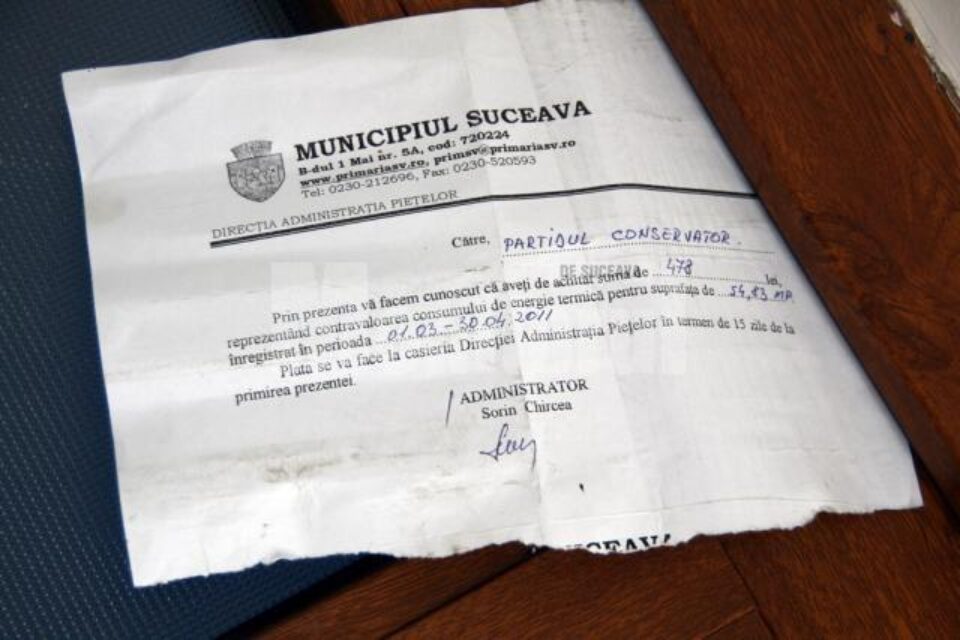 MUNICIPIUL SUCEAVA
B-dul 1 Mai nr. 5A, cod: 720224
www.primariasv.ro, primsv@primariasv.ro
Tel: 0230-212696, Fax: 0230-520593
DIRECȚIA ADMINISTRAȚIA PIEȚELOR
Către, PARTIDUL CONSERVATOR.
DE SUCEAVA
Prin prezenta vă facem cunoscut că aveți de achitat suma de 478 lei,
reprezentând contravaloarea consumului de energie termică pentru suprafața de 54,83 MP.
înregistrat în perioada 01.03 - 30.04.2011
Plata se va face la casieria Direcției Administrația Piețelor în termen de 15 zile de la
primirea prezentei.
ADMINISTRATOR
Sorin Chircea
SUCEAVA